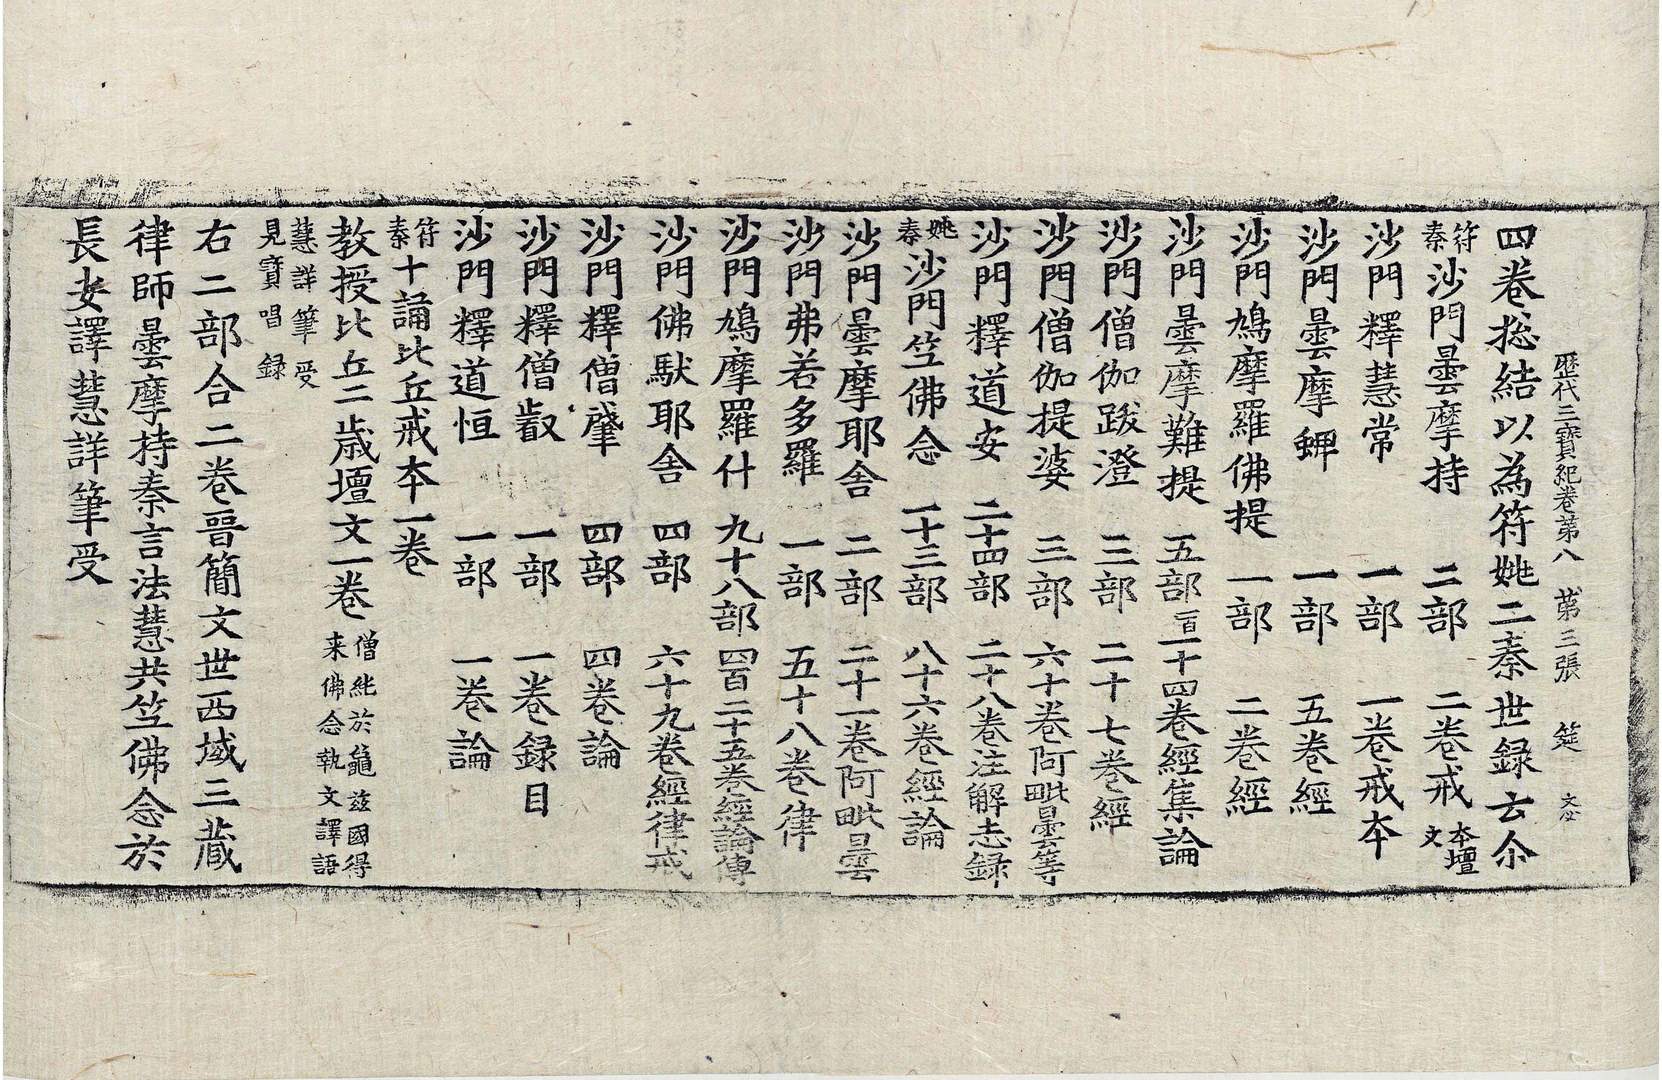 歷代三寶紀卷第八　第三張　筵　
四卷揔結以為符姚二秦世録云尒
符秦沙門曇摩持　二部　二卷戒本壇文
沙門釋慧常　一部　一卷戒本
沙門曇摩蜱　一部　五卷經
沙門鳩摩羅佛提　一部　二卷經
沙門曇摩難提　五部　一百一十四卷經集論
沙門僧伽跋澄　三部　二十七卷經
沙門僧伽提婆　三部　六十卷阿毗曇等
沙門釋道安　二十四部　二十八卷注解志録
姚秦沙門竺佛念　一十三部　八十六卷經論
沙門曇摩耶舍　二部　二十一卷阿毗曇
沙門弗若多羅　一部　五十八卷律
沙門鳩摩羅什　九十八部　四百二十五卷經論傳
沙門佛馱耶舍　四部　六十九卷經律戒
沙門釋僧肇　四部　四卷論
沙門釋僧叡　一部　一卷録目
沙門釋道恒　一部　一卷論
符秦十誦比丘戒本一卷
教授比丘二歲壇文一卷僧純於龜茲國得来佛念執文譯語
慧詳筆受見寶唱録
右二部合二卷晉簡文世西域三藏
律師曇摩持秦言法慧共竺佛念於
長安譯慧詳筆受